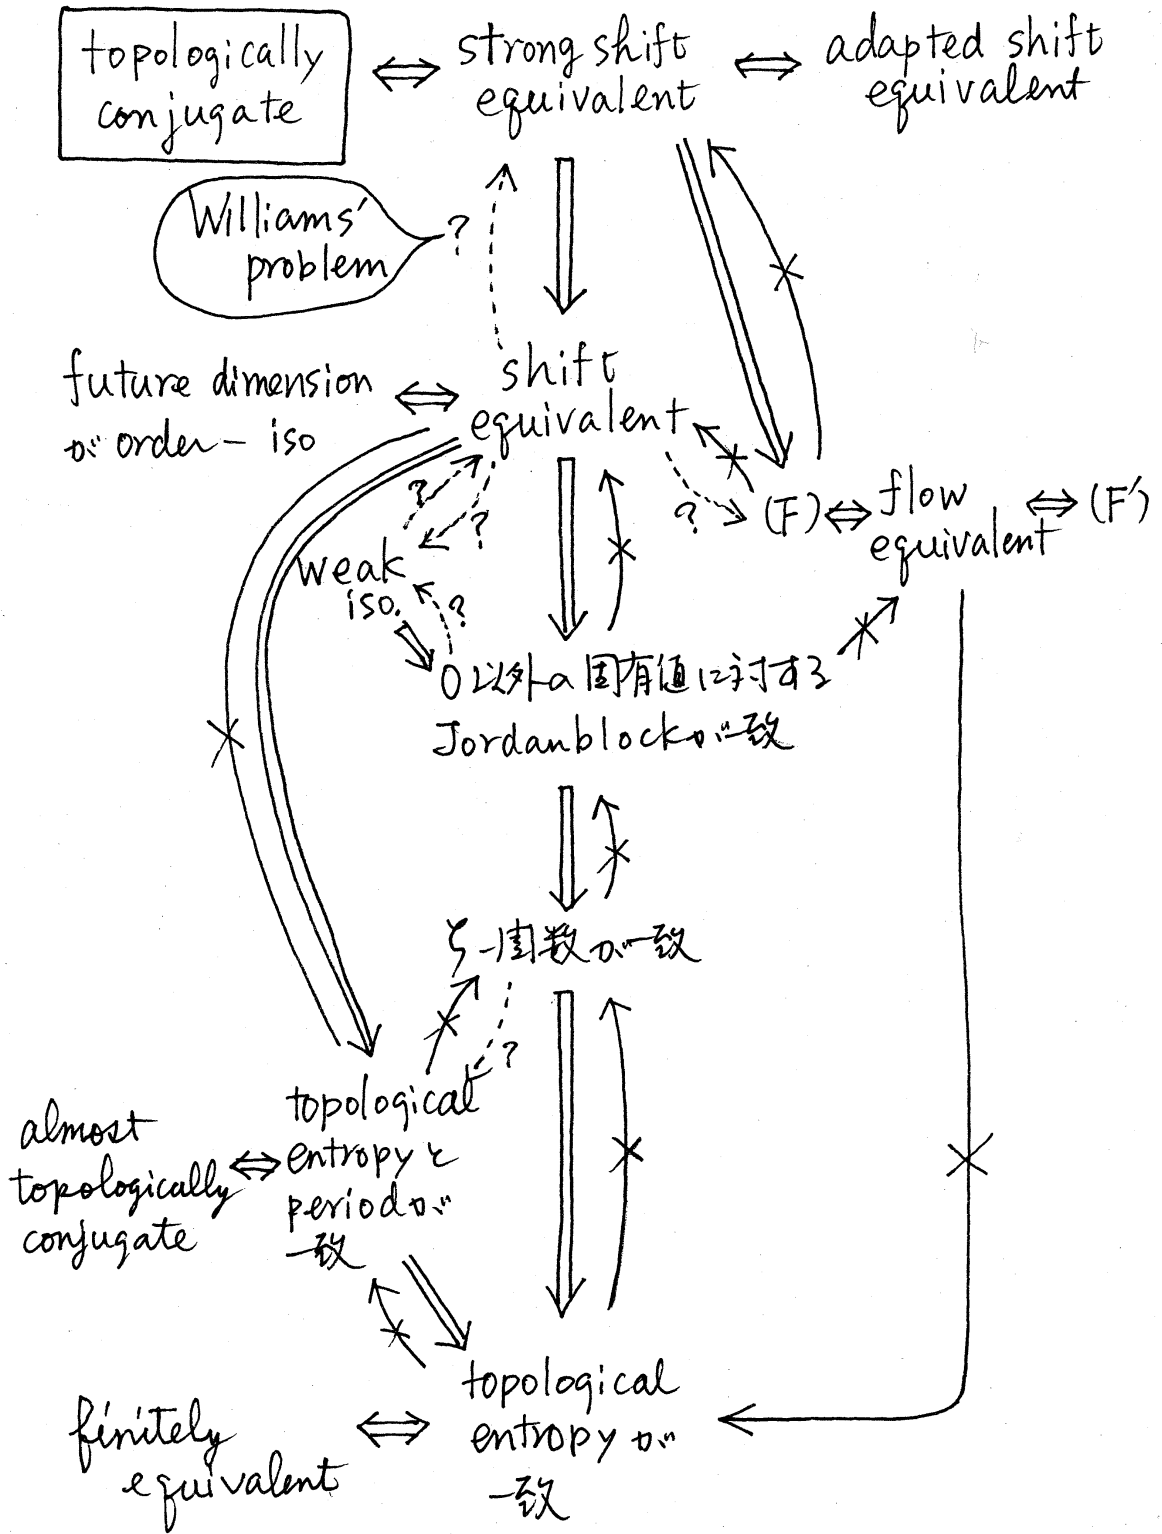 topologically
conjugate
strong shift
equivalent
adapted shift
equivalent
Williams'
problem
?
future dimension
が order-iso
shift
equivalent
?
?
?
(F)
flow
equivalent
(F')
weak
iso.
?
0以外の固有値に対する
Jordan blockが一致
ζ-関数が一致
?
almost
topologically
conjugate
topological
entropyと
periodが
一致
finitely
equivalent
topological
entropyが
一致